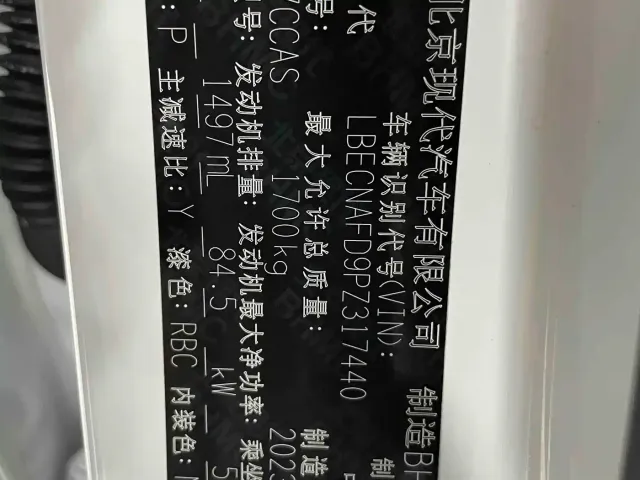 北京现代汽车有限公司 制造BH
代 车辆识别代号(VIN):
LBECNAFD9PZ317440
号: 最大允许总质量: 制造
7CCAS 1700kg 2023
号: 发动机排量: 发动机最大净功率: 乘坐
1497mL 84.5 kW 5
: P 主减速比: Y 漆色: RBC 内装色: